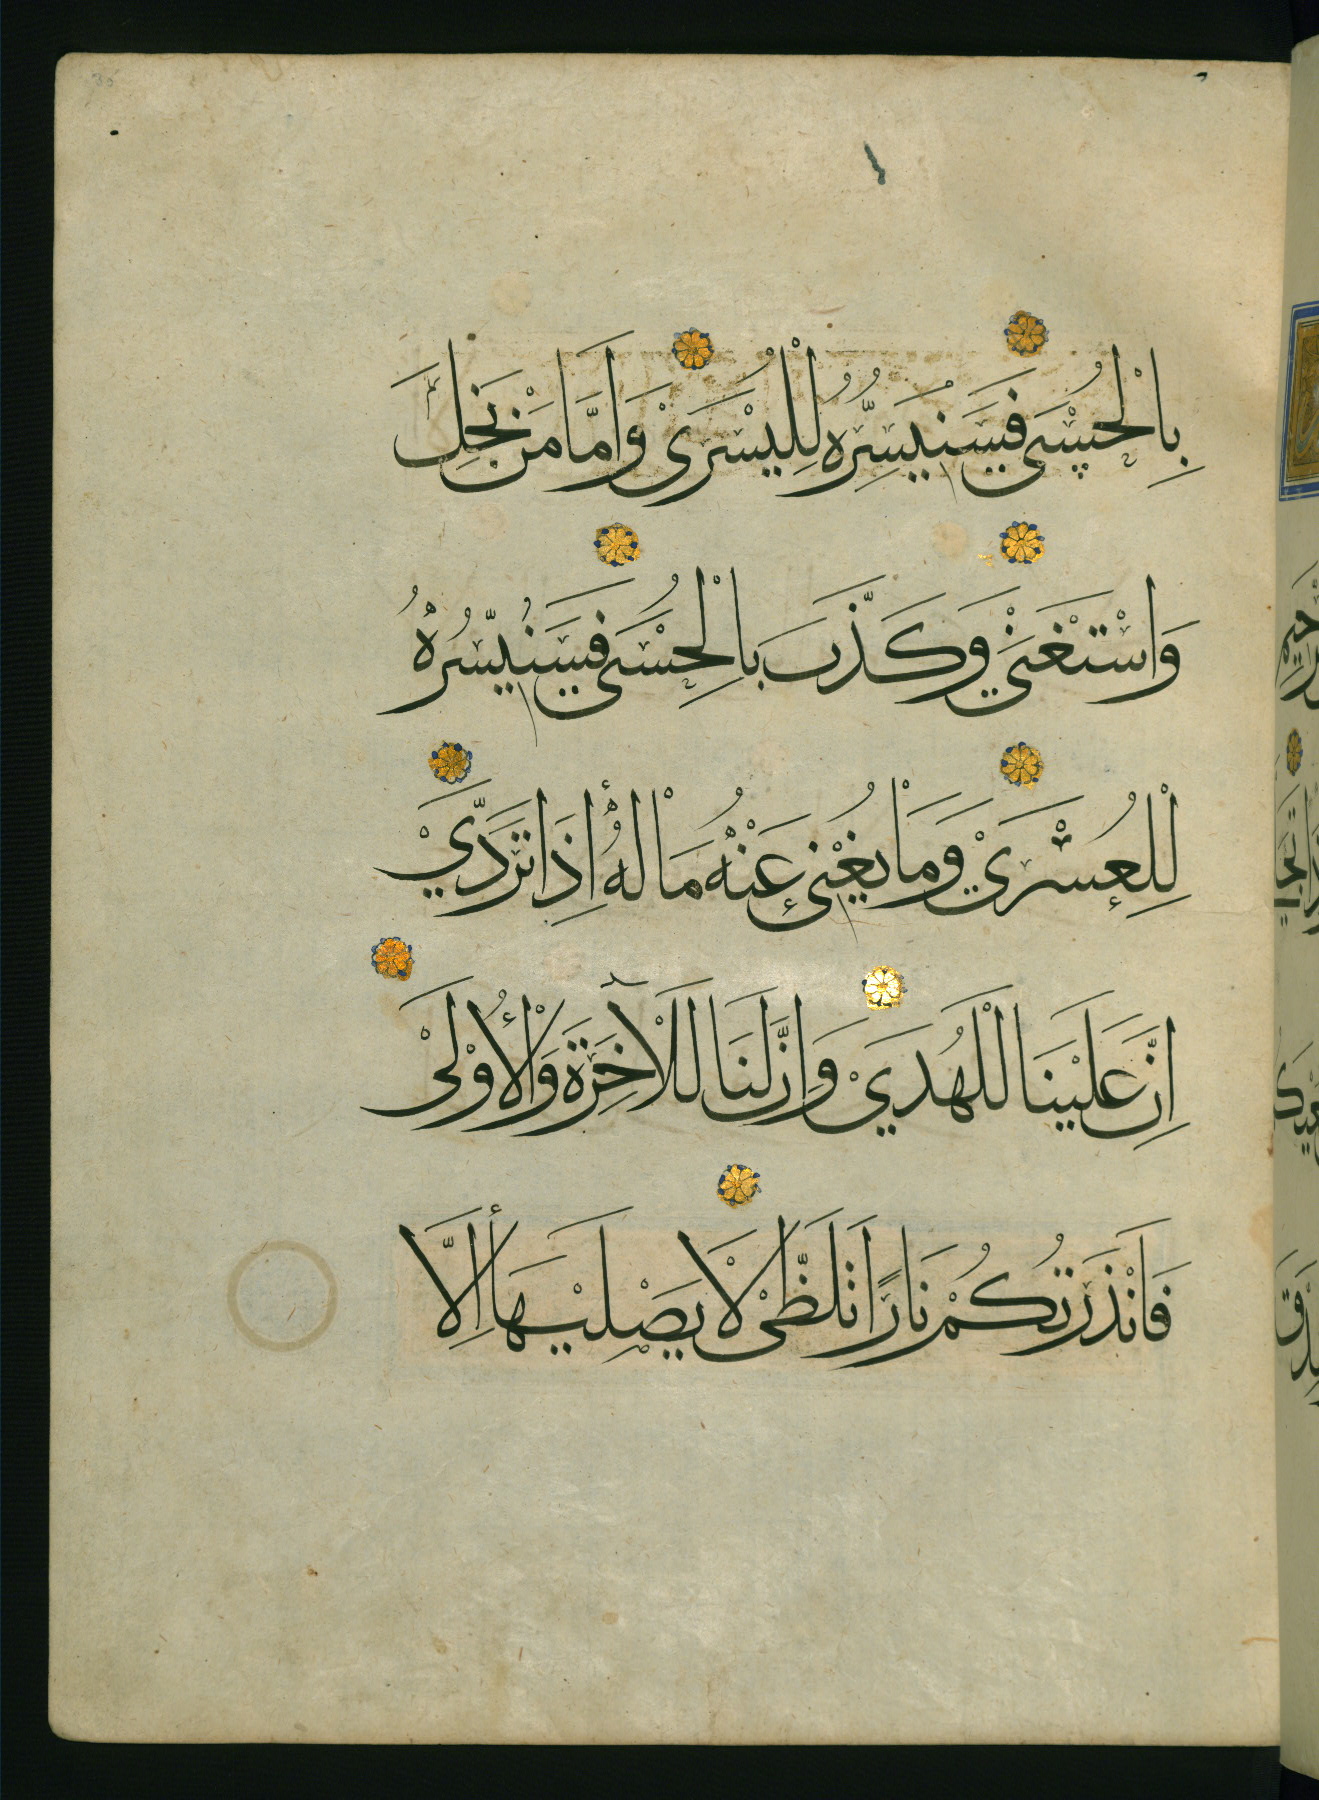 بِالْحُسْنَى فَسَنُيَسِّرُهُ لِلْيُسْرَىْ وَاَمَّا مَنْ بَخِلَ
وَاسْتَغْنَىْ وَكَذَّبَ بِالْحُسْنَى فَسَنُيَسِّرُهُ
لِلْعُسْرَىْ وَمَا يُغْنِى عَنْهُ مَالُهُ إِذَا تَرَدَّىْ
اِنَّ عَلَيْنَا لَلْهُدَىْ وَاِنَّ لَنَا لَلْآخِرَةَ وَالْأُوْلَىْ
فَاَنْذَرْتُكُمْ نَارًا تَلَظَّىْ لَا يَصْلَيهَا إِلَّا